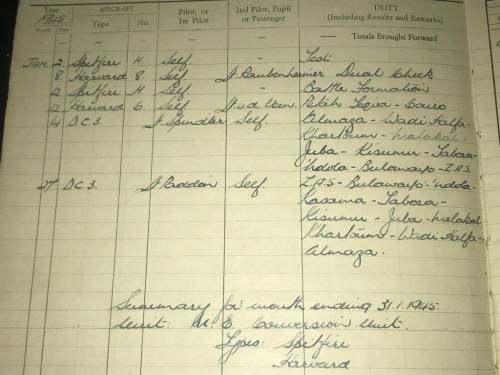 Year AIRCRAFT Pilot, or 2nd Pilot, Pupil DUTY
1945 Type No. 1st Pilot or Passenger (Including Results and Remarks)
Month Date
— — — — — — Totals Brought Forward
JAN 2 Spitfire H. Self. - Test
8. Harvard 8. Self. Lt Raubenheimer Dual Check
2 Spitfire H. Self. - Battle Formation
2 Harvard 6. Self. Lt v.d. Petah Tiqva - Cairo
4 D.C.3. Lt Spindler Self. Almaza - Wadi-Halfa-
Khartoum - Malakal-
Juba - Kisumu - Tabora-
Ndola - Bulawayo - Z.A.S.
27. D.C.3. Lt Paddon Self. Z.A.S - Bulawayo - Ndola-
Kasama - Tabora-
Kisumu - Juba - Malakal
Khartoum - Wadi Halfa-
Almaza.
Summary for month ending 31.1.1945.
Unit: M.E. Conversion Unit.
Types: Spitfire
Harvard